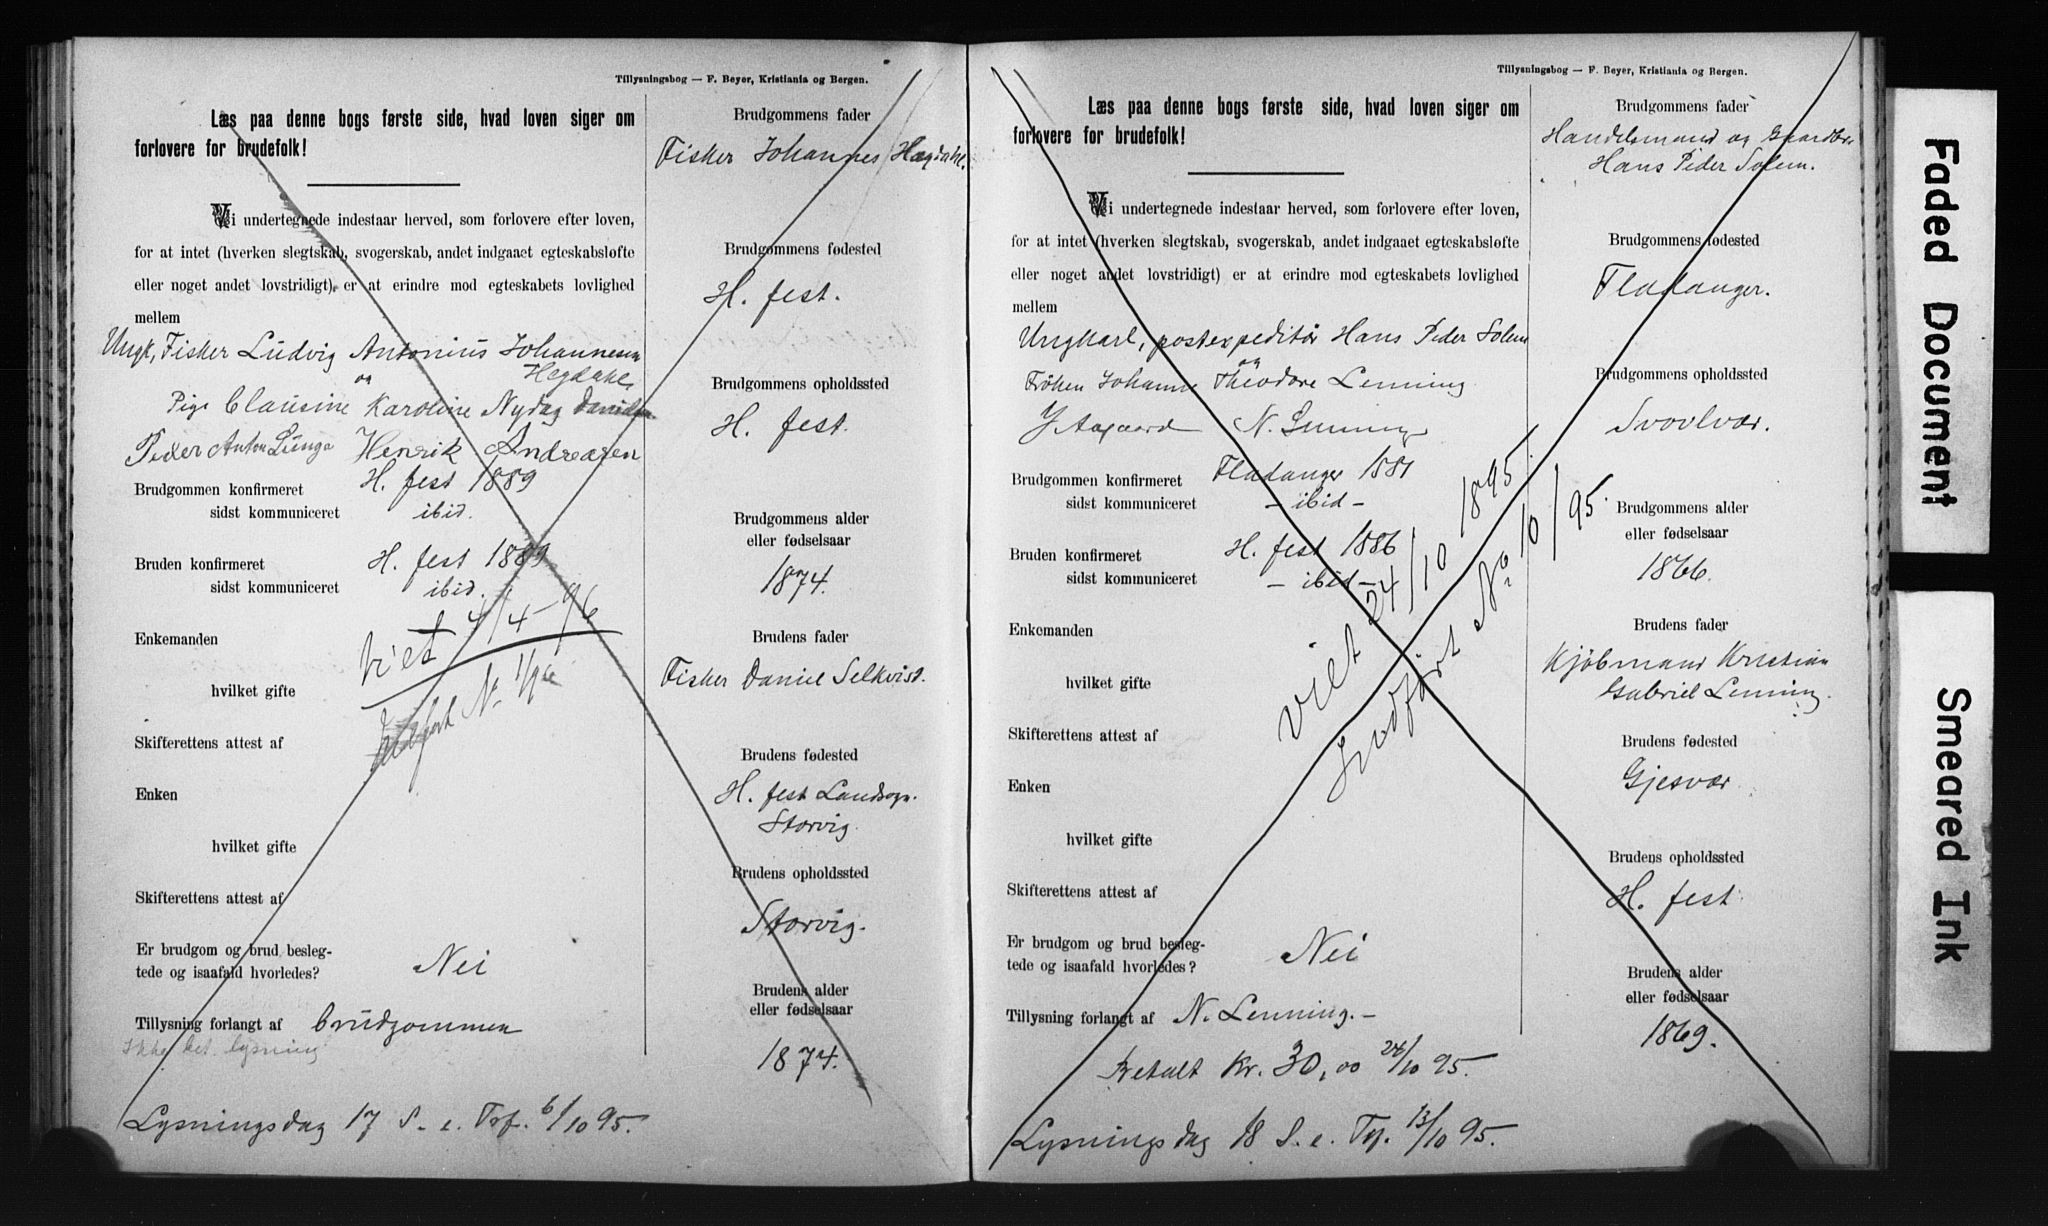 Tillysningsbog — F. Beyer, Kristiania og Bergen.
Læs paa denne bogs første side, hvad loven siger om
forlovere for brudefolk!
Vi undertegnede indestaar herved, som forlovere efter loven,
for at intet (hverken slegtskab, svogerskab, andet indgaaet egteskabsløfte
eller noget andet lovstridigt) er at erindre mod egteskabets lovlighed
mellem
Ungk, Fisker Ludvig Antonius Johannesen
Hegdahl
og
Pige Clausine Karoline Nydag Danielsen
Peder Anton Linga Henrik Andreasen
H. fest 1889
Brudgommen konfirmeret
sidst kommuniceret ibid.
Bruden konfirmeret H. fest 1889
sidst kommuniceret ibid.
Enkemanden
Viet 4/4 - 96
hvilket gifte
Indført No 1/96
Skifterettens attest af
Enken
hvilket gifte
Skifterettens attest af
Er brudgom og brud besleg-
tede og isaafald hvorledes? Nei
Tillysning forlangt af brudgommen
Ikke bet. lysning
Lysningsdag 17 S. e. Tref. 6/10 95.
Brudgommens fader
Fisker Johannes Hegdahl.
Brudgommens fødested
H. fest.
Brudgommens opholdssted
H. fest.
Brudgommens alder
eller fødselsaar
1874.
Brudens fader
Fisker Daniel Selkvist.
Brudens fødested
H. fest Landsogn.
Storvig.
Brudens opholdssted
Storvig.
Brudens alder
eller fødselsaar
1874.
Tillysningsbog — F. Beyer, Kristiania og Bergen.
Læs paa denne bogs første side, hvad loven siger om
forlovere for brudefolk!
Vi undertegnede indestaar herved, som forlovere efter loven,
for at intet (hverken slegtskab, svogerskab, andet indgaaet egteskabsløfte
eller noget andet lovstridigt) er at erindre mod egteskabets lovlighed
mellem
Ungkarl, postexpeditør Hans Peder Solem
og
Frøken Johanne Theodore Lenning
J Aagaard N. Lenning
Brudgommen konfirmeret Fladanger 1881
sidst kommuniceret - ibid -
Bruden konfirmeret H. fest 1886
sidst kommuniceret - ibid -
Enkemanden
Viet 24/10 1895
hvilket gifte
Indført No 10/95.
Skifterettens attest af
Enken
hvilket gifte
Skifterettens attest af
Er brudgom og brud besleg-
tede og isaafald hvorledes? Nei
Tillysning forlangt af N. Lenning. -
Betalt Kr. 30,00 24/10 95.
Lysningsdag 18 S. e. Tref. 13/10 95.
Brudgommens fader
Handelsmand og Gaardbr.
Hans Peder Solem.
Brudgommens fødested
Fladanger.
Brudgommens opholdssted
Svovlvær.
Brudgommens alder
eller fødselsaar
1866.
Brudens fader
Kjøbmand Kristian
Gabriel Lenning.
Brudens fødested
Gjesvær
Brudens opholdssted
H. fest
Brudens alder
eller fødselsaar
1869.
Faded Document
Smeared Ink